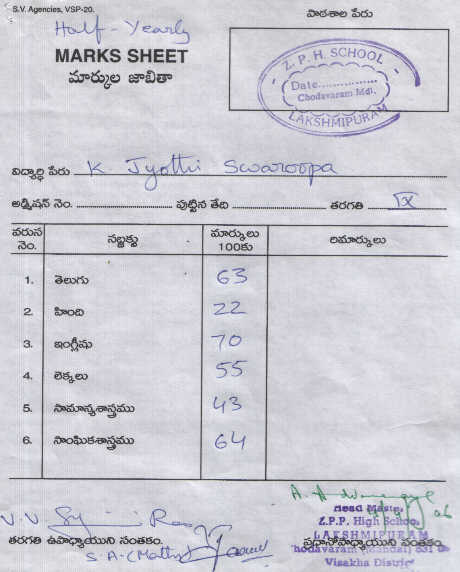 S.V. Agencies, VSP-20.
పాఠశాల పేరు
Half - Yearly
MARKS SHEET
మార్కుల జాబితా
Z. P. H. SCHOOL
Date
Chodavaram Mdl.
LAKSHMIPURAM
విద్యార్థి పేరు K Jyothi Swaroopa
అడ్మిషన్ నెం. పుట్టిన తేది తరగతి IX
వరుస నెం. సబ్జెక్టు మార్కులు 100కు రిమార్కులు
1. తెలుగు 63
2. హింది 22
3. ఇంగ్లీషు 70
4. లెక్కలు 55
5. సామాన్యశాస్త్రము 43
6. సాంఘికశాస్త్రము 64
Head Master
Z.P.P. High School
తరగతి ఉపాధ్యాయుని సంతకం. LAKSHMIPURAM
ప్రధానోపాధ్యాయుని సంతకం.
S.A-(Maths)
Chodavaram (Mandal) 531 0
Visakha District